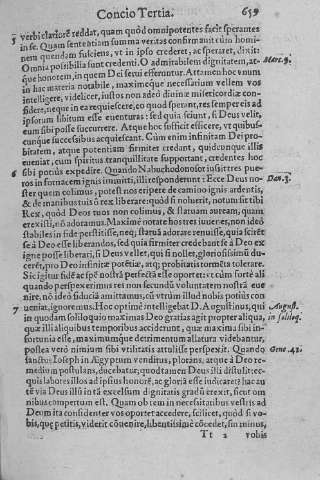 Concio Tertia. 659
5 verbi clariorẽ reddat, quam quòd omnipotentes facit sperantes
in se. Quam sententiam summa veritas confirmauit cùm homi-
nem quendam fulciens, vt in ipso crederet, ac speraret, dixit:
Omnia possibilia sunt credenti. O admirabilem dignitatem, at- Marc. 9.
que honorem, in quem Dei serui efferuntur. Attamen hoc vnum
in hac materia notabile, maximeque necessarium vellem vos
intelligere, videlicet, iustos non adeò diuinæ misericordiæ con-
fidere, neque in ea requiescere, eo quòd sperant, res semper eis ad
ipsorum libitum esse euenturas: sed quia sciunt, si Deus velit,
eum sibi posse succurrere. Atque hoc sufficit illis scire, vt quibus-
cunque successibus acquiescant. Cùm enim infinitam Dei pro-
bitatem, atque potentiam firmiter credant, quidcunque illis
eueniat, cum spiritus tranquillitate supportant, credentes hoc
6 sibi potiùs expedire. Quando Nabuchodonosor iussit tres pue-
ros in fornacem ignis immitti, illi responderunt: Ecce Deus no- Dan. 3.
ster quem colimus, potest nos eripere de camino ignis ardentis,
& de manibus tuis ô rex liberare: quòd si noluerit, notum sit tibi
Rex, quòd Deos tuos non colimus, & statuam auream, quam
erexisti, nõ adoramus. Maximè notate hos tres iuuenes, non ideò
stabiles in fide perstitisse, neq; statuã adorare renuisse, quia scirẽt
se à Deo esse liberandos, sed quia firmiter credebant se à Deo ex
igne posse liberari, si Deus vellet, qui si nollet, gloriosissimũ du-
cerẽt, pro Dei infinitæ potẽtiæ, atq; probitatis tormẽta tolerare.
Sic igitur fidẽ ac spẽ nostrã perfectã esse oportet: vt cùm fortè ali
quando perspexerimus res non secundũ voluntatem nostrã eue
nire, nõ ideò fiduciã amittamus, cũ vtrùm illud nobis potiùs con
7 ueniat, ignoremus. Hoc optimè intelligebat D. Augustinus, qui August.
in quodam soliloquio maximas Deo gratias agit propter aliqua, in soliloq.
quæ illi aliquibus temporibus acciderunt, quæ maxima sibi in-
fortunia esse, maximumque detrimentum allatura videbantur,
postea verò nimium sibi vtilitatis attulisse perspexit. Quando Gene. 42.
sanctus Ioseph in Ægyptum venditus, plorans, atque à Deo re-
medium postulans, ducebatur, quodtamen Deus illi distulit: ec-
quis labores illos ad ipsius honorẽ, ac gloriã esse iudicaret? hac au
tẽ via Deus illũ in tã excelsum dignitatis gradũ erexit, sicut om
nibus compertum est. Quam ob rem in necessitatibus vestris ad
Deum ita considenter vos oportet accedere, scilicet, quòd si vo-
bis, quę petitis, viderit cõuenire, libentissimè cõcedet, sin minus,
Tt 2 vobis